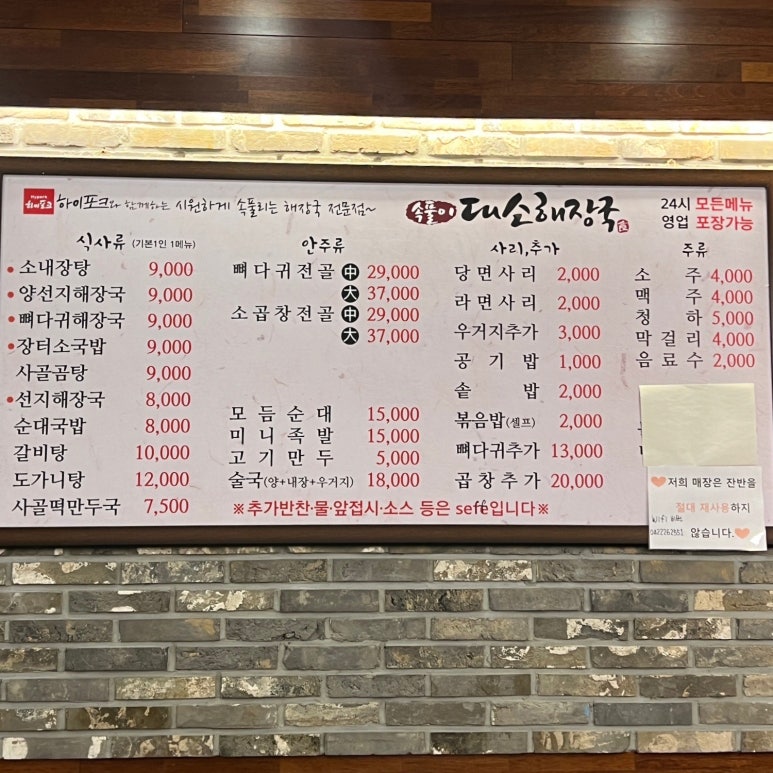 Hypork
하이포크
하이포크와 함께하는 시원하게 속풀리는 해장국 전문점~
속풀이 대소해장국
24시 모든메뉴
영업 포장가능
식사류 (기본1인 1메뉴)
소내장탕 9,000
양선지해장국 9,000
뼈다귀해장국 9,000
장터소국밥 9,000
사골곰탕 9,000
선지해장국 8,000
순대국밥 8,000
갈비탕 10,000
도가니탕 12,000
사골떡만두국 7,500
안주류
뼈다귀전골 中 29,000
大 37,000
소곱창전골 中 29,000
大 37,000
모듬순대 15,000
미니족발 15,000
고기만두 5,000
술국(양+내장+우거지) 18,000
사리,추가
당면사리 2,000
라면사리 2,000
우거지추가 3,000
공기밥 1,000
솥밥 2,000
볶음밥(셀프) 2,000
뼈다귀추가 13,000
곱창추가 20,000
주류
소주 4,000
맥주 4,000
청하 5,000
막걸리 4,000
음료수 2,000
※추가반찬·물·앞접시·소스 등은 self입니다※
저희 매장은 잔반을
절대 재사용하지
않습니다.
wifi